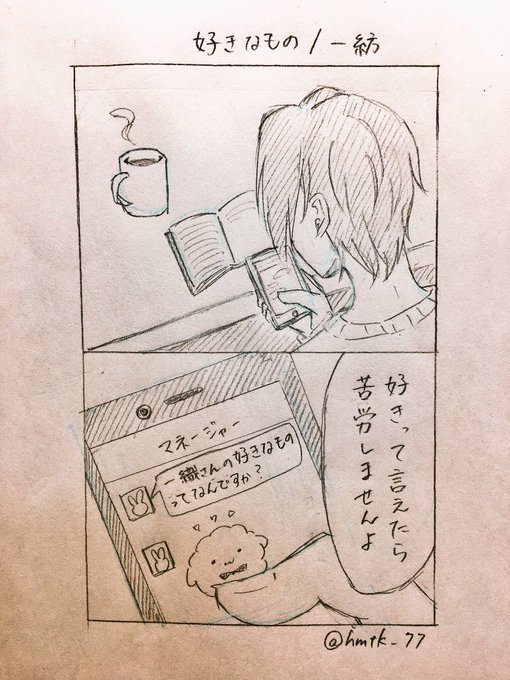 好きなもの/一紡
マネージャー
一織さんの好きなもの
ってなんですか?
好きって言えたら
苦労しませんよ
@hmtk_77